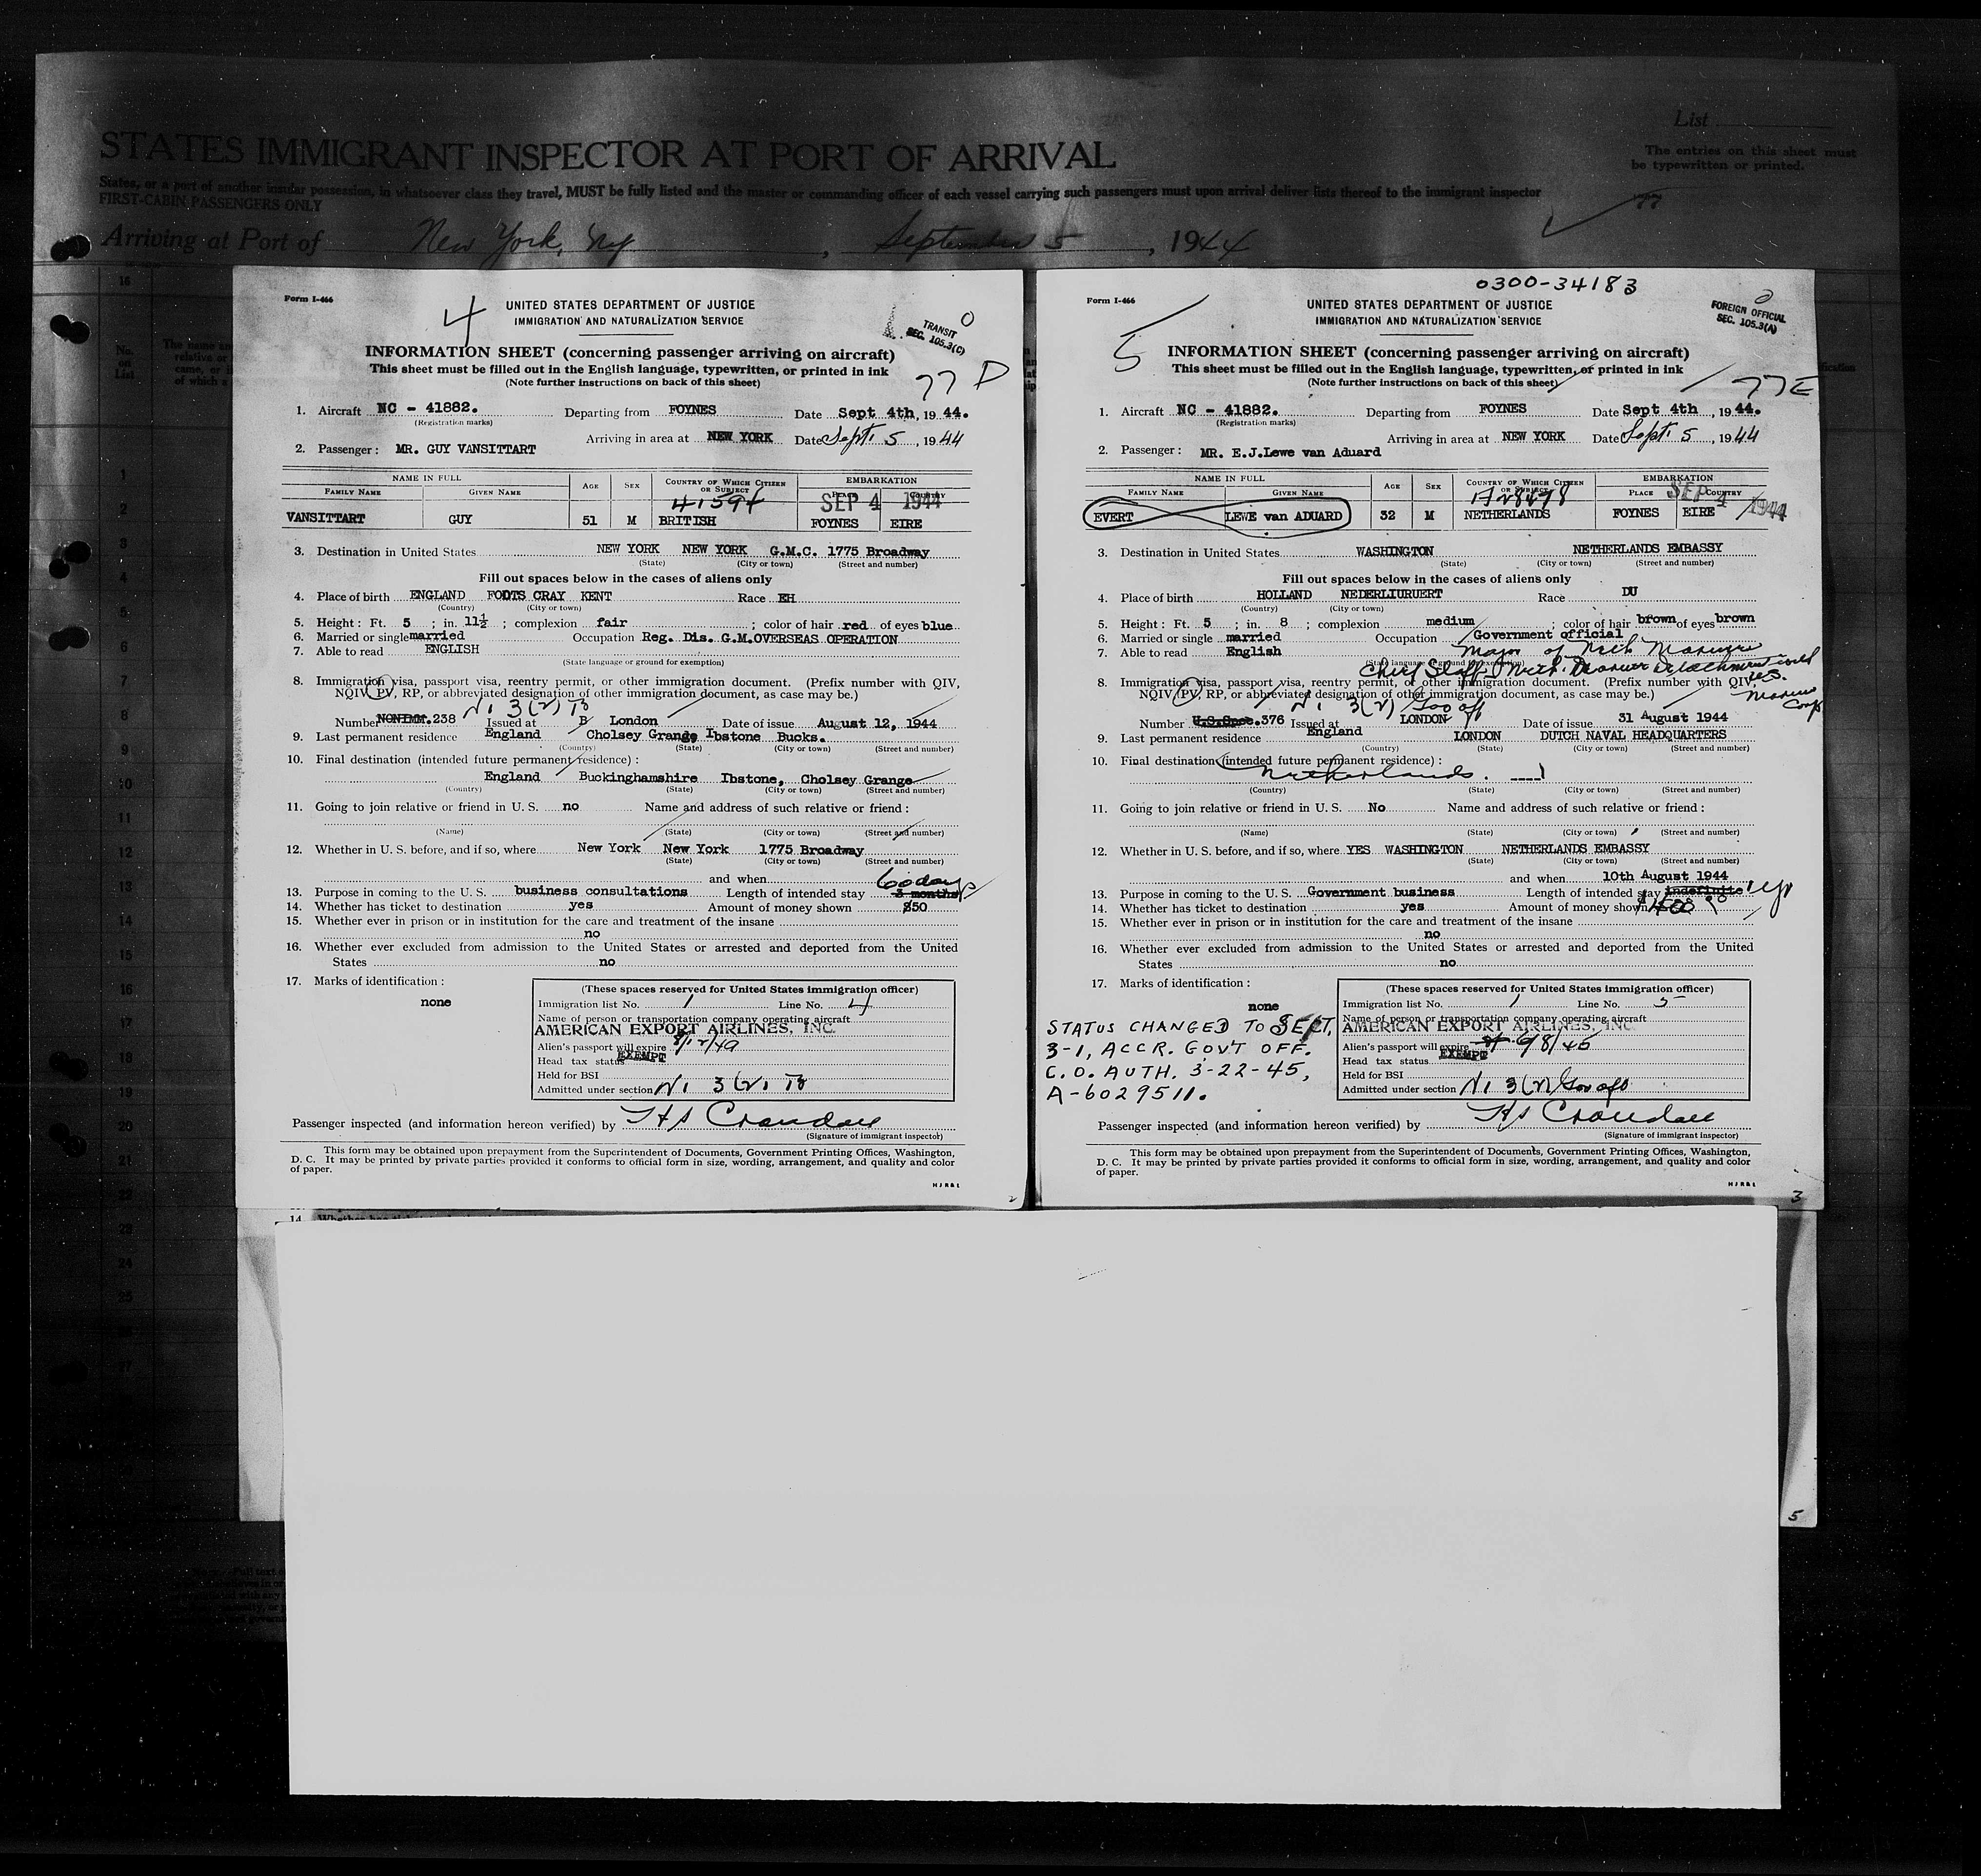 List
STATES IMMIGRANT INSPECTOR AT PORT OF ARRIVAL
The entries on this sheet must
be typewritten or printed.
States, or a port of another insular possession, in whatsoever class they travel, MUST be fully listed and the master or commanding officer of each vessel carrying such passengers must upon arrival deliver lists thereof to the immigrant inspector
FIRST-CABIN PASSENGERS ONLY
77
Arriving at Port of New York, NY, September 5, 1944
Form I-466
4
UNITED STATES DEPARTMENT OF JUSTICE
IMMIGRATION AND NATURALIZATION SERVICE
TRANSIT
SEC. 105.3(C)
0
INFORMATION SHEET (concerning passenger arriving on aircraft)
This sheet must be filled out in the English language, typewritten, or printed in ink
(Note further instructions on back of this sheet)
77 D
1. Aircraft NC - 41882. Departing from FOYNES Date Sept 4th, 1944.
(Registration marks)
Arriving in area at NEW YORK Date Sept. 5, 1944
2. Passenger: MR. GUY VANSITTART
NAME IN FULL AGE SEX COUNTRY OF WHICH CITIZEN OR SUBJECT EMBARKATION
FAMILY NAME GIVEN NAME PLACE COUNTRY
41594 SEP 4 1944
VANSITTART GUY 51 M BRITISH FOYNES EIRE
3. Destination in United States NEW YORK NEW YORK G.M.C. 1775 Broadway
(State) (City or town) (Street and number)
Fill out spaces below in the cases of aliens only
4. Place of birth ENGLAND FOOTS CRAY KENT Race EH
(Country) (City or town)
5. Height: Ft. 5; in. 11½; complexion fair; color of hair red of eyes blue
6. Married or single married Occupation Reg. Dis. G.M.OVERSEAS OPERATION
7. Able to read ENGLISH
(State language or ground for exemption)
8. Immigration visa, passport visa, reentry permit, or other immigration document. (Prefix number with QIV,
NQIV, PV, RP, or abbreviated designation of other immigration document, as case may be.)
Number NONIMM.238 Issued at London Date of issue August 12, 1944
9. Last permanent residence England Cholsey Grange Ibstone Bucks.
(Country) (State) (City or town) (Street and number)
10. Final destination (intended future permanent residence):
England Buckinghamshire Ibstone, Cholsey Grange
(Country) (State) (City or town) (Street and number)
11. Going to join relative or friend in U. S. no Name and address of such relative or friend:
(Name) (State) (City or town) (Street and number)
12. Whether in U. S. before, and if so, where New York New York 1775 Broadway
(State) (City or town) (Street and number)
and when 60 days
13. Purpose in coming to the U. S. business consultations Length of intended stay 3 months
14. Whether has ticket to destination yes Amount of money shown $50
15. Whether ever in prison or in institution for the care and treatment of the insane
no
16. Whether ever excluded from admission to the United States or arrested and deported from the United
States no
17. Marks of identification:
none
(These spaces reserved for United States immigration officer)
Immigration list No. 1 Line No. 4
Name of person or transportation company operating aircraft
AMERICAN EXPORT AIRLINES, INC.
Alien's passport will expire
Head tax status EXEMPT
Held for BSI
Admitted under section
Passenger inspected (and information hereon verified) by H S Crandall
(Signature of immigrant inspector)
This form may be obtained upon prepayment from the Superintendent of Documents, Government Printing Offices, Washington,
D. C. It may be printed by private parties provided it conforms to official form in size, wording, arrangement, and quality and color
of paper.
2
0300-34183
Form I-466
5
UNITED STATES DEPARTMENT OF JUSTICE
IMMIGRATION AND NATURALIZATION SERVICE
FOREIGN OFFICIAL
SEC. 105.3(A)
INFORMATION SHEET (concerning passenger arriving on aircraft)
This sheet must be filled out in the English language, typewritten, or printed in ink
(Note further instructions on back of this sheet)
77E
1. Aircraft NC - 41882. Departing from FOYNES Date Sept 4th, 1944.
(Registration marks)
Arriving in area at NEW YORK Date Sept. 5, 1944
2. Passenger: MR. E.J.Lewe van Aduard
NAME IN FULL AGE SEX COUNTRY OF WHICH CITIZEN OR SUBJECT EMBARKATION
FAMILY NAME GIVEN NAME PLACE COUNTRY
SEP 4 1944
EVERT LEWE van ADUARD 32 M NETHERLANDS FOYNES EIRE
3. Destination in United States WASHINGTON NETHERLANDS EMBASSY
(State) (City or town) (Street and number)
Fill out spaces below in the cases of aliens only
4. Place of birth HOLLAND NEDERLIURUERT Race DU
(Country) (City or town)
5. Height: Ft. 5; in. 8; complexion medium; color of hair brown of eyes brown
6. Married or single married Occupation Government official
7. Able to read English Major of Neth Marines
(State language or ground for exemption)
8. Immigration visa, passport visa, reentry permit, or other immigration document. (Prefix number with QIV,
NQIV, PV, RP, or abbreviated designation of other immigration document, as case may be.)
Number U.S.Spec.376 Issued at LONDON Date of issue 31 August 1944
9. Last permanent residence England LONDON DUTCH NAVAL HEADQUARTERS
(Country) (State) (City or town) (Street and number)
10. Final destination (intended future permanent residence):
Netherlands.
(Country) (State) (City or town) (Street and number)
11. Going to join relative or friend in U. S. No Name and address of such relative or friend:
(Name) (State) (City or town) (Street and number)
12. Whether in U. S. before, and if so, where YES WASHINGTON NETHERLANDS EMBASSY
(State) (City or town) (Street and number)
and when 10th August 1944
13. Purpose in coming to the U. S. Government business Length of intended stay indefinite
14. Whether has ticket to destination yes Amount of money shown
15. Whether ever in prison or in institution for the care and treatment of the insane
no
16. Whether ever excluded from admission to the United States or arrested and deported from the United
States no
17. Marks of identification:
none
STATUS CHANGED TO SECT,
3-1, ACCR. GOV'T OFF.
C.O. AUTH. 3-22-45,
A-6029511.
(These spaces reserved for United States immigration officer)
Immigration list No. 1 Line No. 5
Name of person or transportation company operating aircraft
AMERICAN EXPORT AIRLINES, INC.
Alien's passport will expire
Head tax status EXEMPT
Held for BSI
Admitted under section
Passenger inspected (and information hereon verified) by H S Crandall
(Signature of immigrant inspector)
This form may be obtained upon prepayment from the Superintendent of Documents, Government Printing Offices, Washington,
D. C. It may be printed by private parties provided it conforms to official form in size, wording, arrangement, and quality and color
of paper.
3
5